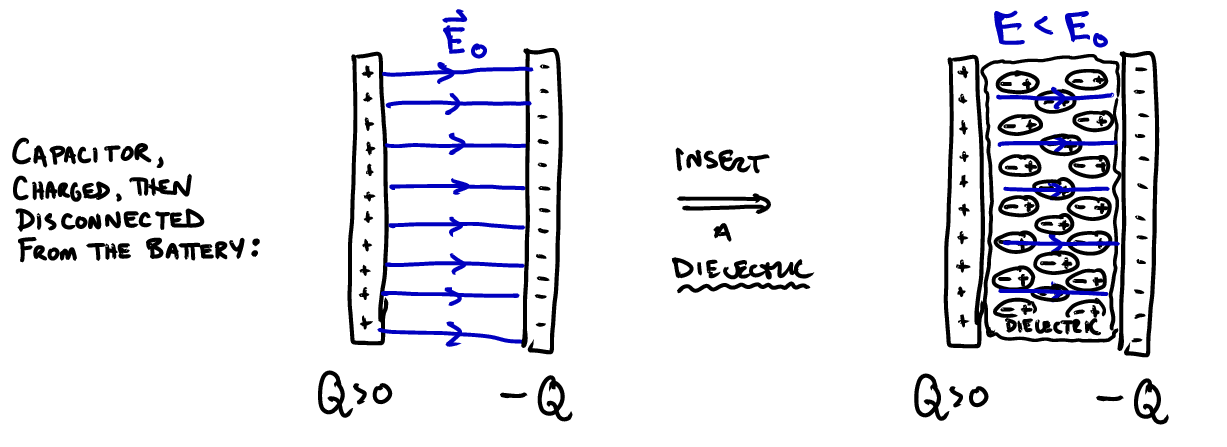 CAPACITOR,
CHARGED, THEN
DISCONNECTED
FROM THE BATTERY:
E⃗₀
Q>0
-Q
INSERT
A
DIELECTRIC
E < E₀
DIELECTRIC
Q>0
-Q